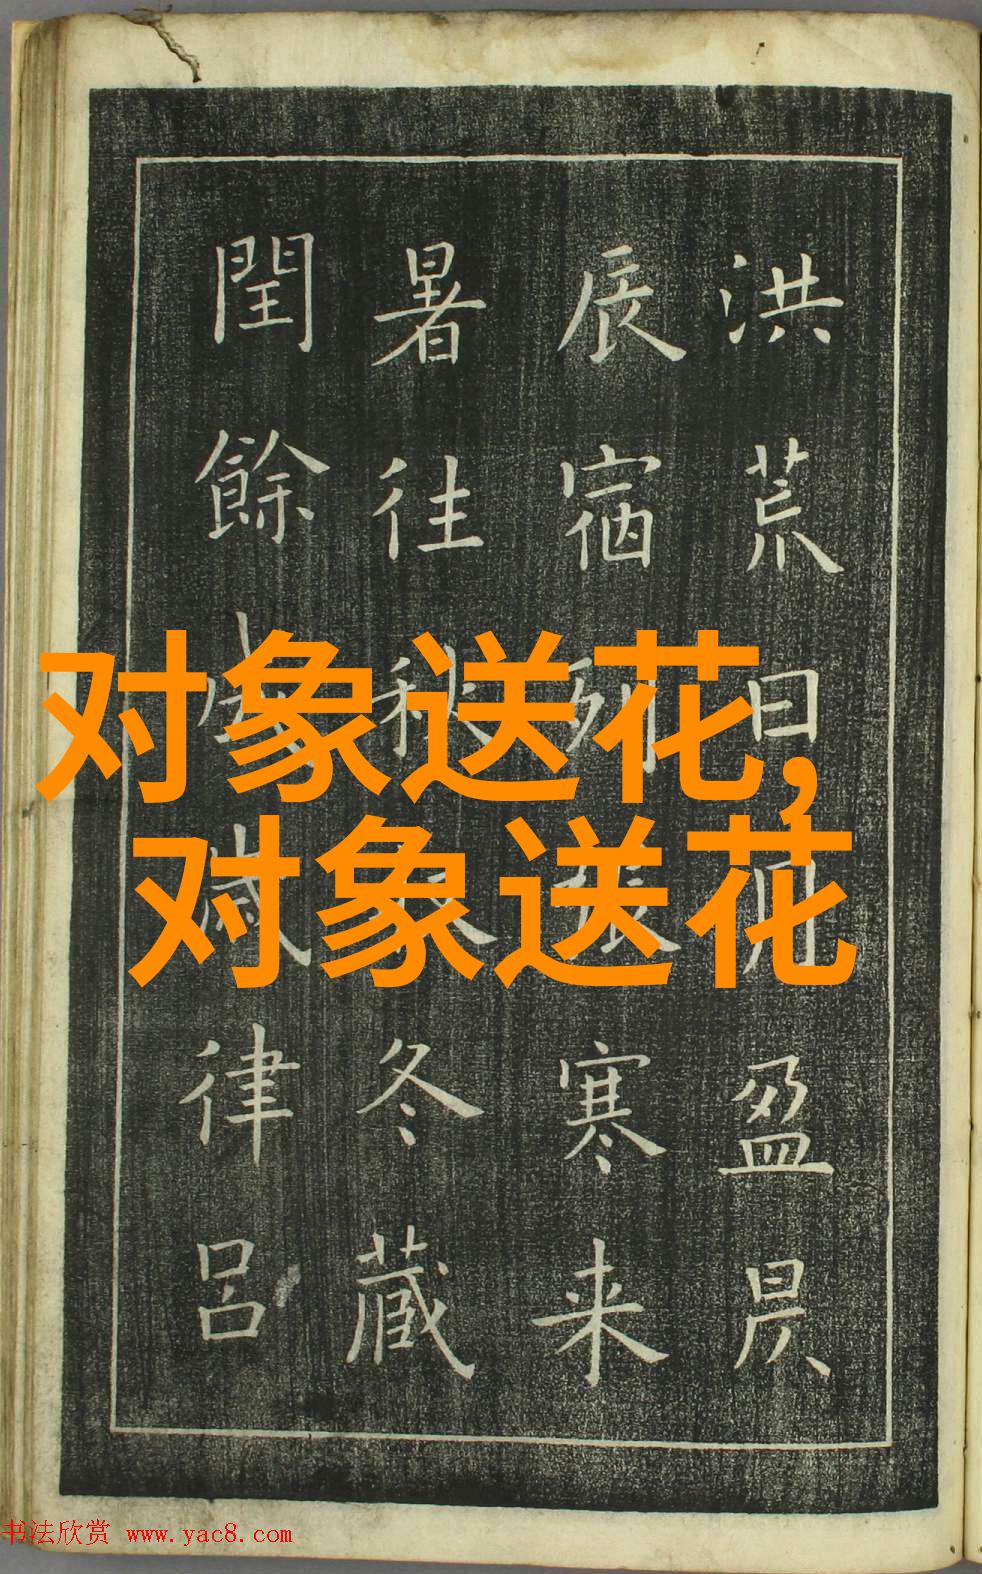 洪荒日月盈昃
辰宿列張寒来
暑往秋冬藏
閏餘歲律呂
对象送花，
对象送花
书法欣赏 www.yac8.com